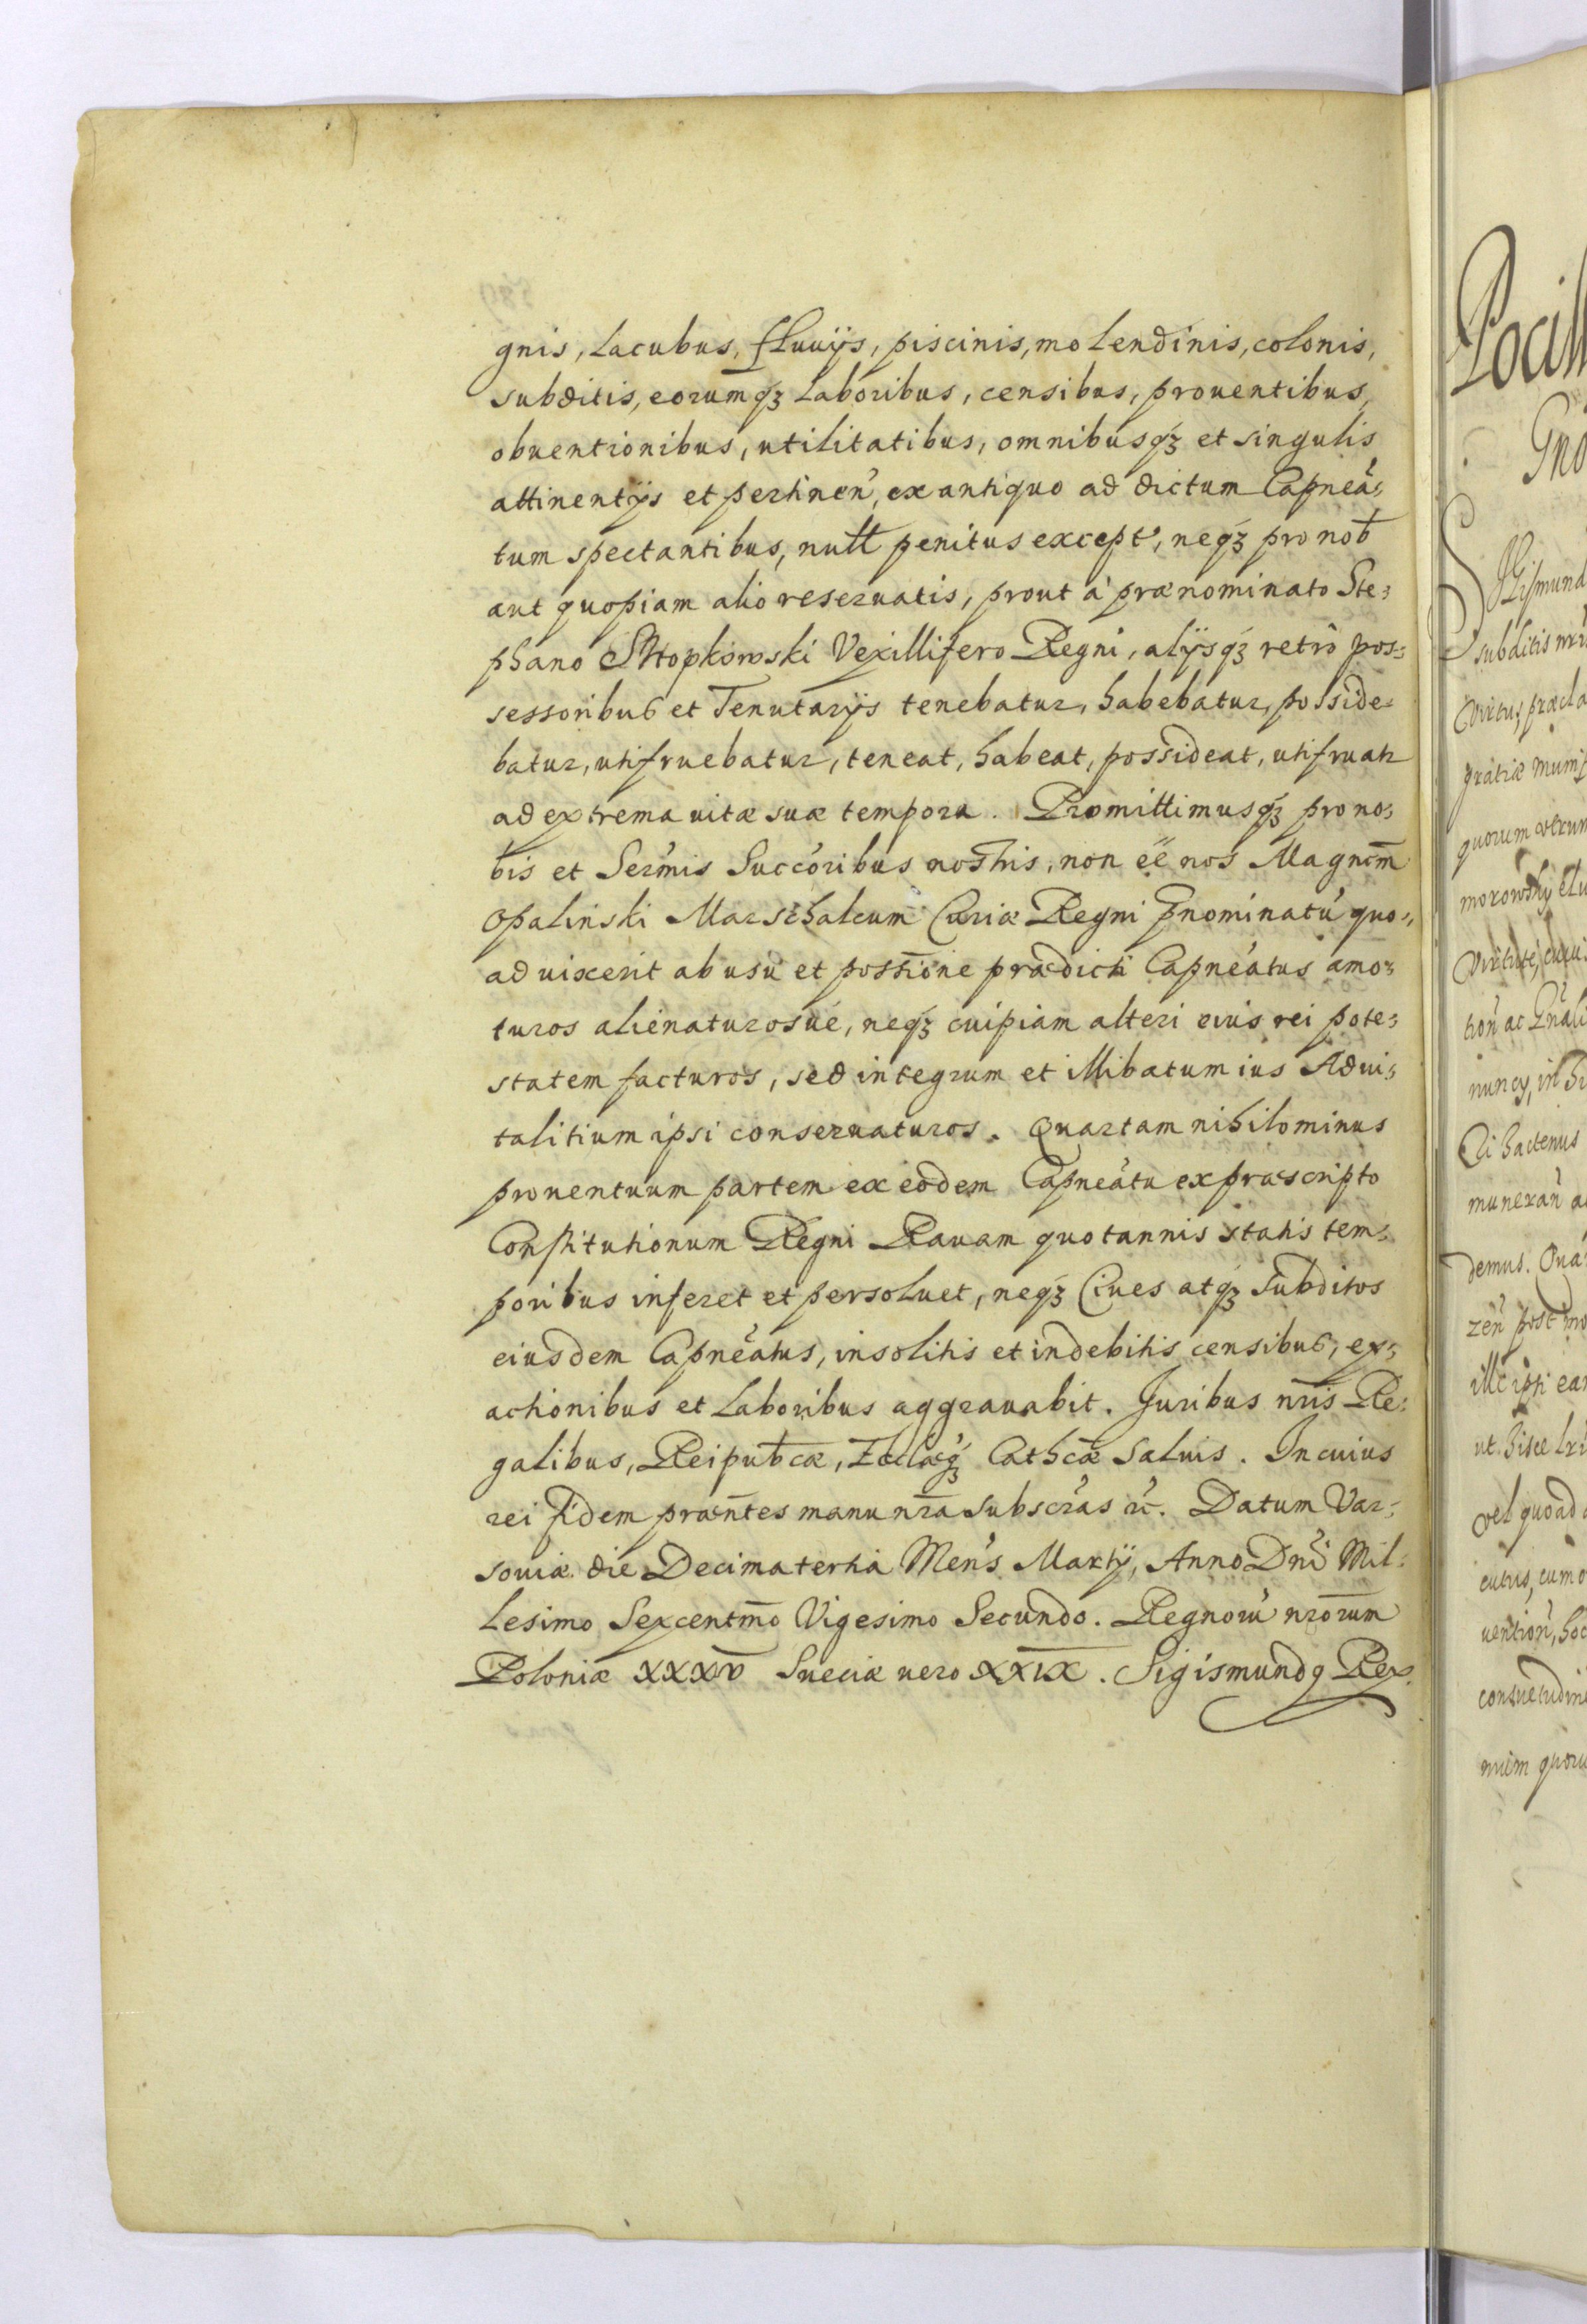 gnis, lacubus, fluuijs, piscinis, molendinis, colonis,
subditis, eorumq́ꝫ laboribus, censibus, prouentibus,
obuentionibus, utilitatibus, omnibusq́ꝫ et singulis
attinentijs et pertinen̓, ex antiquo ad dictum Capnea̓-
tum spectantibus, null penitus except̓, neq́ꝫ pro nob̄
aut quopiam alio reseruatis, prout à prænominato Ste-
phano Vexillifero Regni, alijsq́ꝫ retrò pos-
sessoribus et Tenutarijs tenebatur, habebatur, posside-
batur, utifruebatur, teneat, habeat, possideat, utifruatr
ad extrema uitæ suæ tempora. Promittimusq́ꝫ pro no-
bis et Serm̓is Succo̓ribus nostris, non ee̓ nos Magncm̄
Opalinski Marschalcum Curiæ Regni p̄nominatu̓ quo-
ad uixerit ab usu et possio̅ne prædicti Capnea̓tus amo-
turos alienaturosue, neq́ꝫ cuipiam alteri eius rei pote-
statem facturos, sed integrum et illibatum ius Adui-
talitium ipsi conseruaturos. Quartam nihilominus
prouentuum partem ex eodem Capnea̓tu ex præscripto
Constitutionum Regni Rauam quotannis statis tem-
poribus inferet et persoluet, neq́ꝫ Ciues atq́ꝫ Subditos
eiusdem Capnea̓tus, insolitis et indebitis censibus, ex-
actionibus et laboribus aggrauabit. Juribus nr̄is Re-
galibus, Reipub̄cæ, Ecclæq́ꝫ Cathcǣ saluis. In cuius
rei fidem præn̄tes manu nr̄a subscr̓as etc̄. Datum Var-
souiæ die Decima tertia Men̓s Martij, Anno Dn̓i Mil-
lesimo Sexcentm̄o Vigesimo Secundo. Regnoru̓ nr̄orum
Poloniæ XXXV Sueciæ uero XXIX. Sigismundꝯ Rex.
Gno
subditis
præcla
gratiæ
quorum
ut hisce
vel quoad
cum
consuetudin